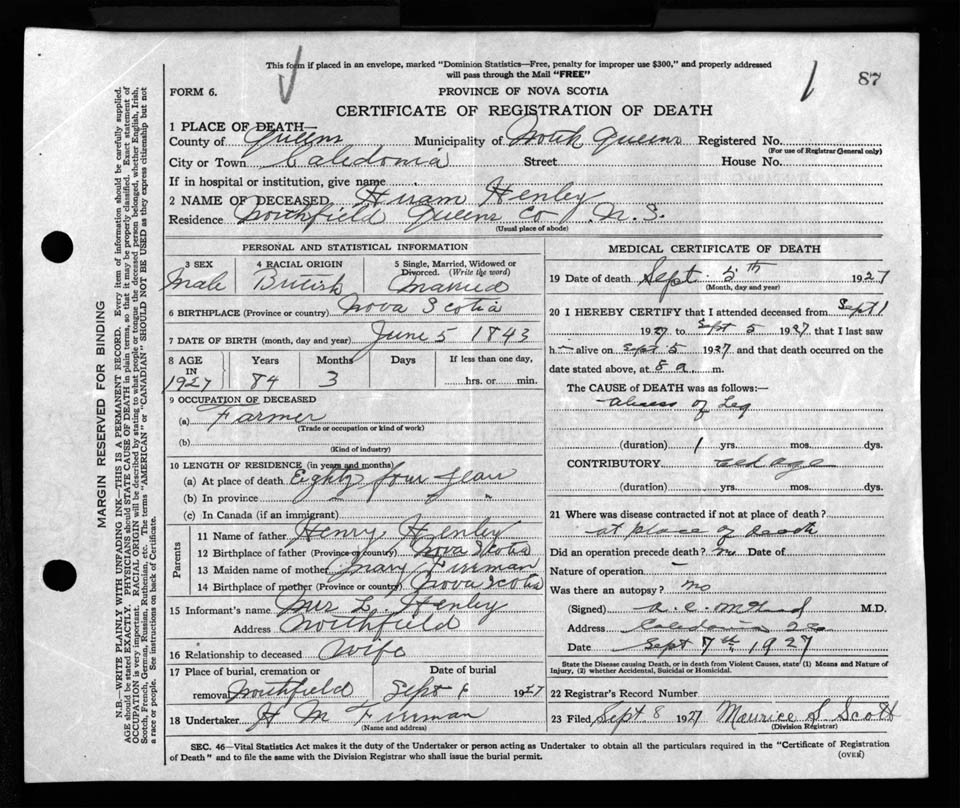 This form if placed in an envelope, marked "Dominion Statistics—Free, penalty for improper use $300," and properly addressed
will pass through the Mail "FREE"
1 87
FORM 6. PROVINCE OF NOVA SCOTIA
CERTIFICATE OF REGISTRATION OF DEATH
1 PLACE OF DEATH—
County of Queens Municipality of North Queens Registered No.
(For use of Registrar General only)
City or Town Caledonia Street House No.
If in hospital or institution, give name
2 NAME OF DECEASED Hiram Henley
Residence Northfield Queens Co N.S.
(Usual place of abode)
PERSONAL AND STATISTICAL INFORMATION
3 SEX 4 RACIAL ORIGIN 5 Single, Married, Widowed or
Divorced. (Write the word)
Male British Married
6 BIRTHPLACE (Province or country) Nova Scotia
7 DATE OF BIRTH (month, day and year) June 5 1843
8 AGE Years Months Days If less than one day,
IN
1927 84 3 hrs. or min.
9 OCCUPATION OF DECEASED
(a) Farmer
(Trade or occupation or kind of work)
(b)
(Kind of industry)
10 LENGTH OF RESIDENCE (in years and months)
(a) At place of death Eighty four year
(b) In province " "
(c) In Canada (if an immigrant)
Parents
11 Name of father Henry Henley
12 Birthplace of father (Province or country) Nova Scotia
13 Maiden name of mother Mary Firman
14 Birthplace of mother (Province or country) Nova Scotia
15 Informant's name Mrs L. Henley
Address Northfield
16 Relationship to deceased Wife
17 Place of burial, cremation or Date of burial
removal Northfield Sept 1927
18 Undertaker H M Firman
(Name and address)
MEDICAL CERTIFICATE OF DEATH
19 Date of death Sept. 5th 1927
(Month, day and year)
20 I HEREBY CERTIFY that I attended deceased from Sept 1
1927 to Sept 5 1927 that I last saw
h alive on Sept 5 1927 and that death occurred on the
date stated above, at 8 a m.
The CAUSE of DEATH was as follows:—
Abcess of Leg
(duration) 1 yrs. mos. dys.
CONTRIBUTORY old age
(duration) yrs. mos. dys.
21 Where was disease contracted if not at place of death?
at place of death
Did an operation precede death? no Date of
Nature of operation —
Was there an autopsy? no
(Signed) M.D.
Address Caledonia
Date Sept 7th 1927
State the Disease causing Death, or in death from Violent Causes, state (1) Means and Nature of
Injury, (2) whether Accidental, Suicidal or Homicidal.
22 Registrar's Record Number
23 Filed Sept 8 1927 Maurice S Scott
(Division Registrar)
SEC. 46—Vital Statistics Act makes it the duty of the Undertaker or person acting as Undertaker to obtain all the particulars required in the "Certificate of Registration
of Death" and to file the same with the Division Registrar who shall issue the burial permit. (OVER)
MARGIN RESERVED FOR BINDING
N.B.—WRITE PLAINLY WITH UNFADING INK—THIS IS A PERMANENT RECORD. Every item of information should be carefully supplied.
AGE should be stated EXACTLY. PHYSICIANS should STATE CAUSE OF DEATH in plain terms, so that it may be properly classified. Exact statement of
OCCUPATION is very important. RACIAL ORIGIN will be described by stating to what people or tongue the deceased person belonged, whether English, Irish,
Scotch, French, German, Russian, Ruthenian, etc. The terms "AMERICAN" or "CANADIAN" SHOULD NOT BE USED as they express citizenship but not
a race or people. See instructions on back of Certificate.